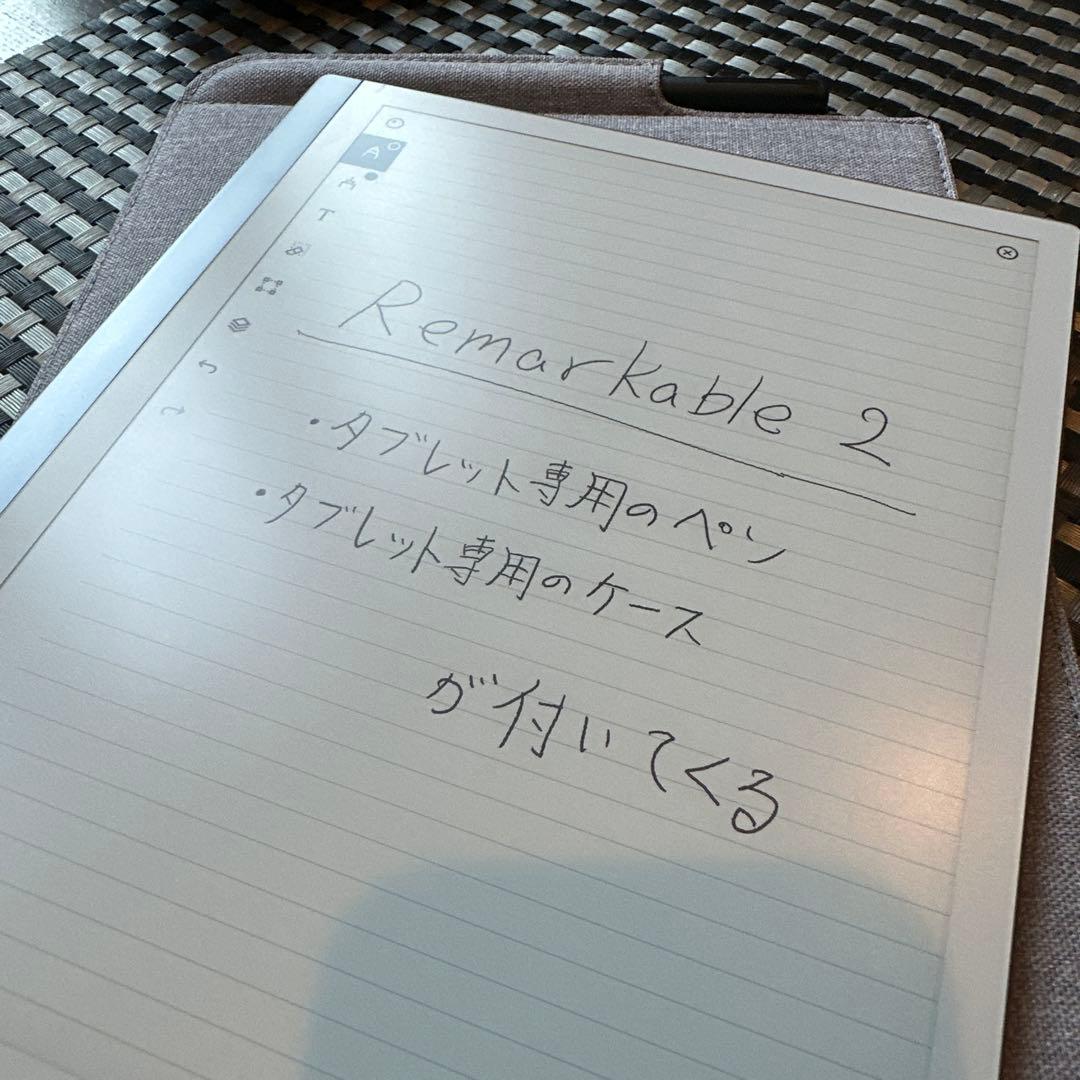 Remarkable 2
・タブレット専用のペン
・タブレット専用のケース
が付いてくる